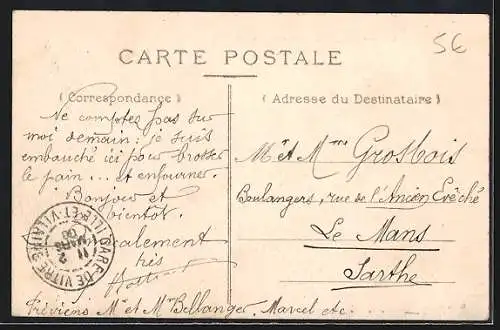 5E
CARTE POSTALE
(Correspondance)
(Adresse du Destinataire)
Ne comptez pas sur
moi demain : je suis
embauché ici pour brosser
le pain ... et enfourner.
Bonjour et
bientôt.
calement
Préviens Mr et Mme Bellanger, Marcel etc.
Mr et Mme Grosbois
Boulangers, rue de l'Ancien Evêché
Le Mans
Sarthe
GARE-DE-VITRÉ ILLE-ET-VILAINE
11
2
MARS